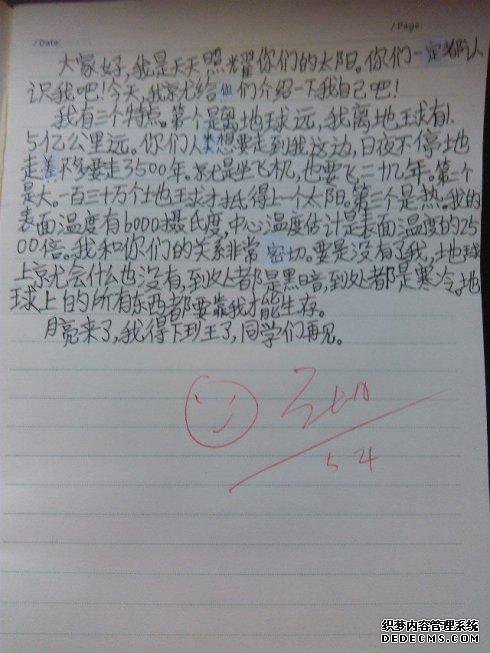 /Date:
/Page:
大家好,我是天天照耀你们的太阳。你们一定都认
识我吧!今天,我就给你们介绍一下我自己吧!
我有三个特点。第一个是离地球远,我离地球有1.
5亿公里远。你们人类想要走到我这边,日夜不停地
走差不多要走3500年。就是坐飞机,也要飞二十几年。第二个
是大。一百三十万个地球才抵得上一个太阳。第三个是热。我的
表面温度有6000摄氏度,中心温度估计是表面温度的25
00倍。我和你们的关系非常密切。要是没有了我,地球
上就会什么也没有,到处都是黑暗,到处都是寒冷。地
球上的所有东西都要靠我才能生存。
月亮来了,我得下班了,同学们再见。
5.4
织梦内容管理系统
DEDECMS.COM